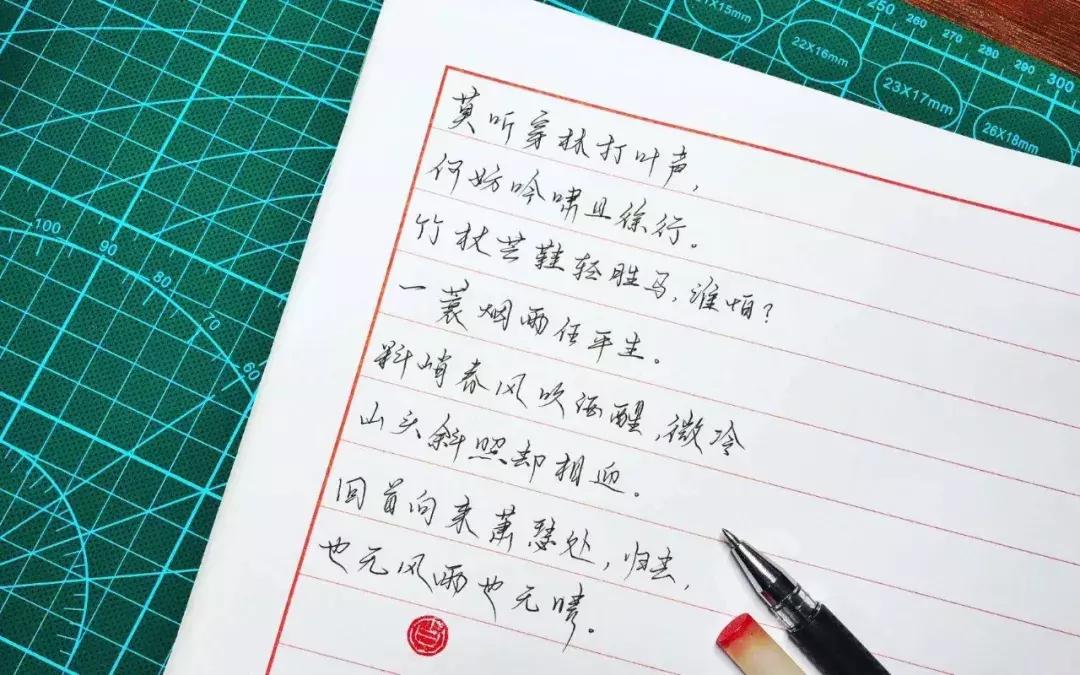 莫听穿林打叶声,
何妨吟啸且徐行。
竹杖芒鞋轻胜马,谁怕?
一蓑烟雨任平生。
料峭春风吹酒醒,微冷
山头斜照却相迎。
回首向来萧瑟处,归去,
也无风雨也无晴。
21X15mm
22X16mm
23X17mm
26X18mm
250
260
270
280
290
300
100
90
80
70
60